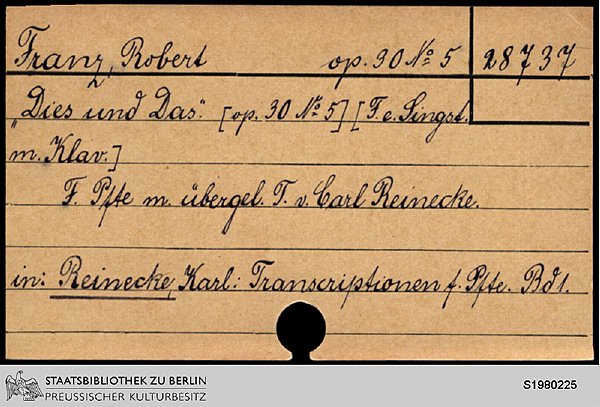 Franz, Robert op. 30 No 5 28737
„Dies und Das“. [op. 30 No 5] [F. e. Singst.
m. Klav.]
F. Pfte m. übergel. T. v. Carl Reinecke.
in: Reinecke, Karl: Transcriptionen f. Pfte. Bd 1.
STAATSBIBLIOTHEK ZU BERLIN
PREUSSISCHER KULTURBESITZ
S1980225